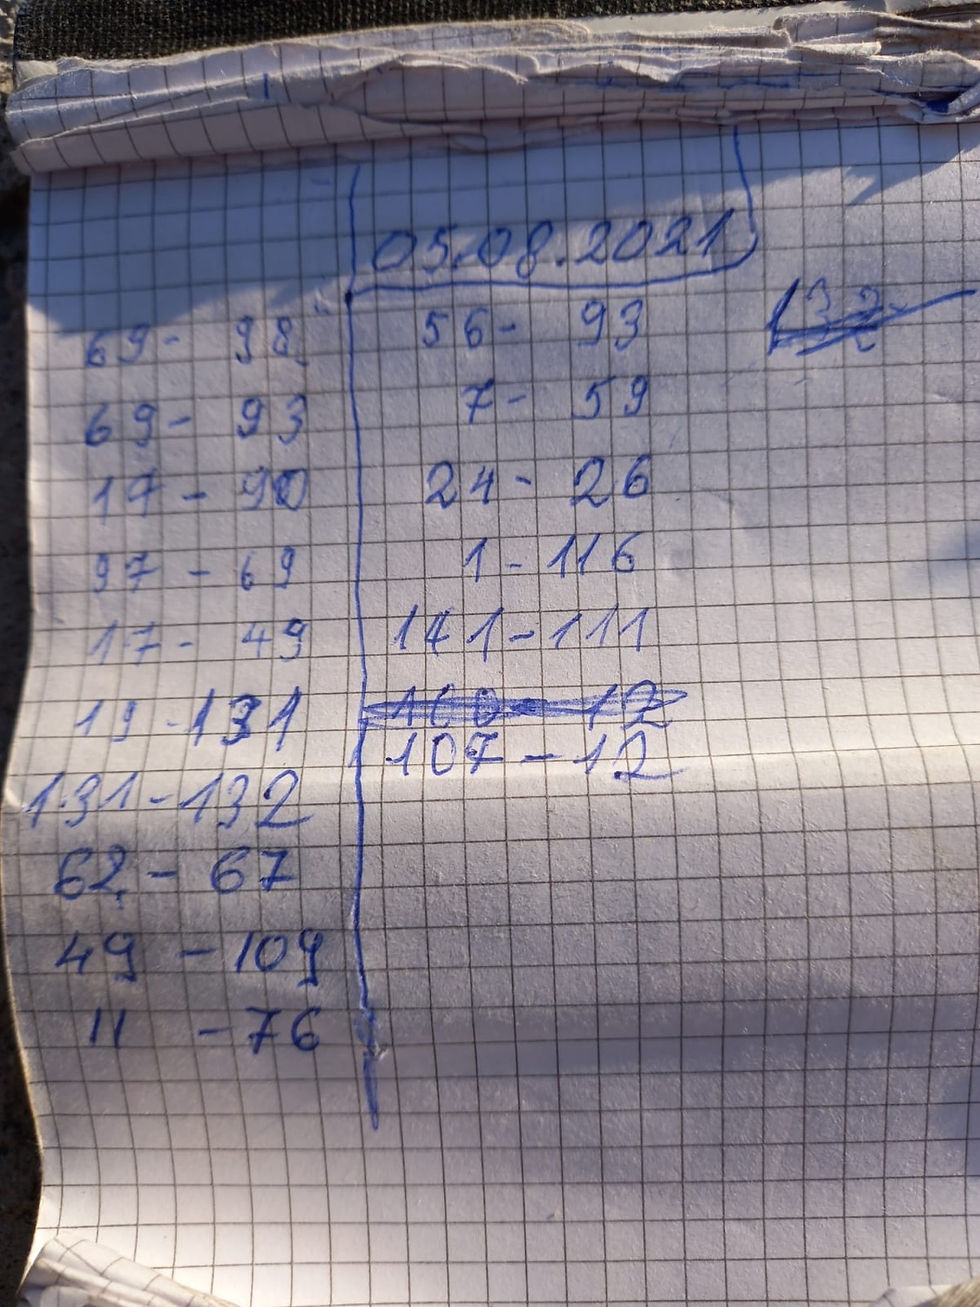 69 - 98
69 - 93
17 - 90
97 - 69
17 - 49
19 - 131
131 - 132
62 - 67
49 - 109
11 - 76
05.08.2021
56 - 93
7 - 59
24 - 26
1 - 116
141 - 111
107 - 12
132